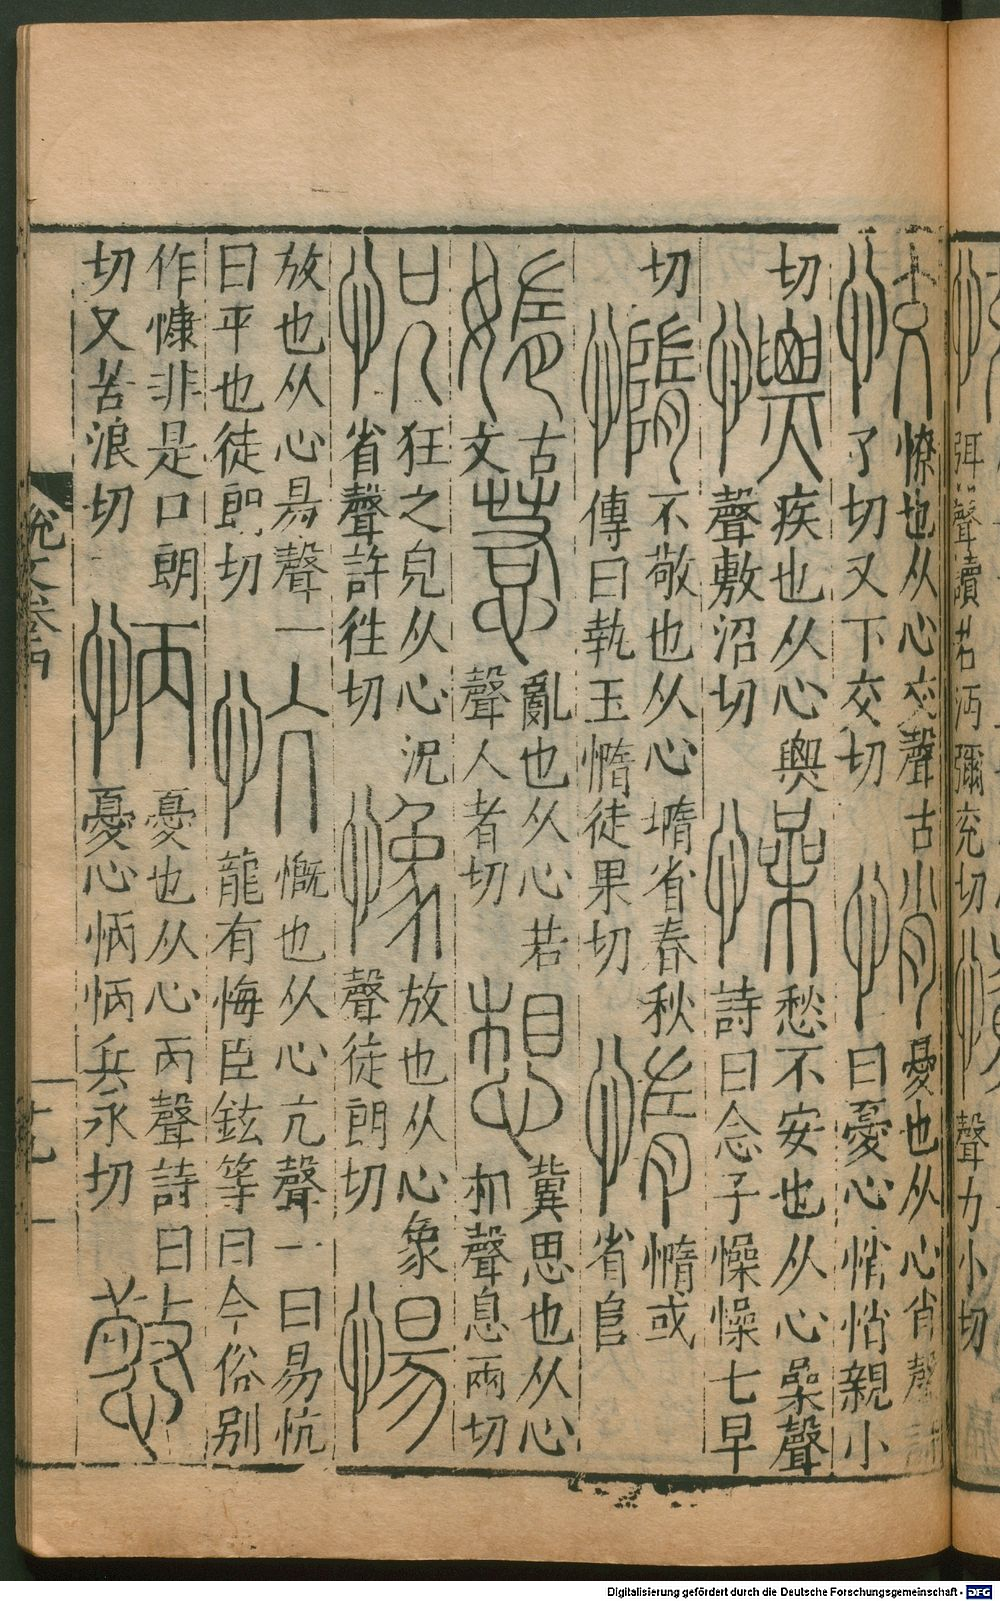 弭聲讀若沔彌兖切
聲力小切
恔
憭也从心交聲古
了切又下交切
悄
憂也从心肖聲詩
曰憂心悄悄親小
切
慓
疾也从心票聲
聲敷沼切
懆
愁不安也从心喿聲
詩曰念子懆懆七早
切
憜
不敬也从心㙐省春秋
傳曰執玉憜徒果切
惰
憜或
省𨸏
媠
古
文
惹
亂也从心若
聲人者切
想
冀思也从心
相聲息兩切
怳
狂之皃从心況
省聲許往切
𢠽
放也从心象
聲徒朗切
愓
放也从心昜聲一
曰平也徒朗切
忼
慨也从心亢聲一曰易忼
龍有悔臣鉉等曰今俗別
作慷非是口朗
切又苦浪切
怲
憂也从心丙聲詩曰
憂心怲怲兵永切
憼
說文卷
十九
Digitalisierung gefördert durch die Deutsche Forschungsgemeinschaft - DFG